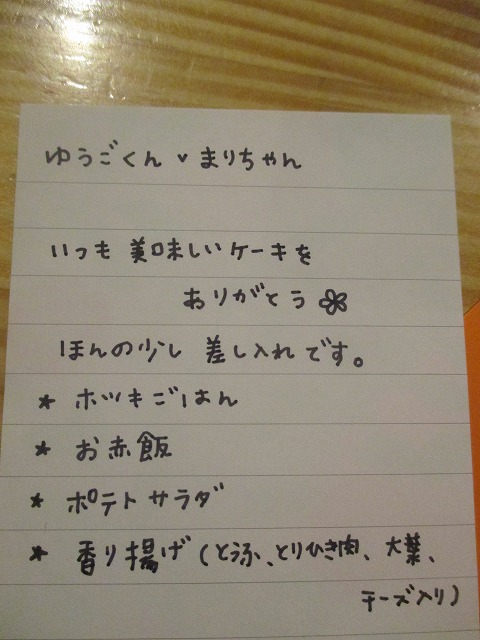 ゆうごくん♥まりちゃん
いつも 美味しいケーキを
ありがとう
ほんの少し 差し入れです。
* ホッキごはん
* お赤飯
* ポテトサラダ
* 香り揚げ(とうふ、とりひき肉、大葉、
チーズ入り)